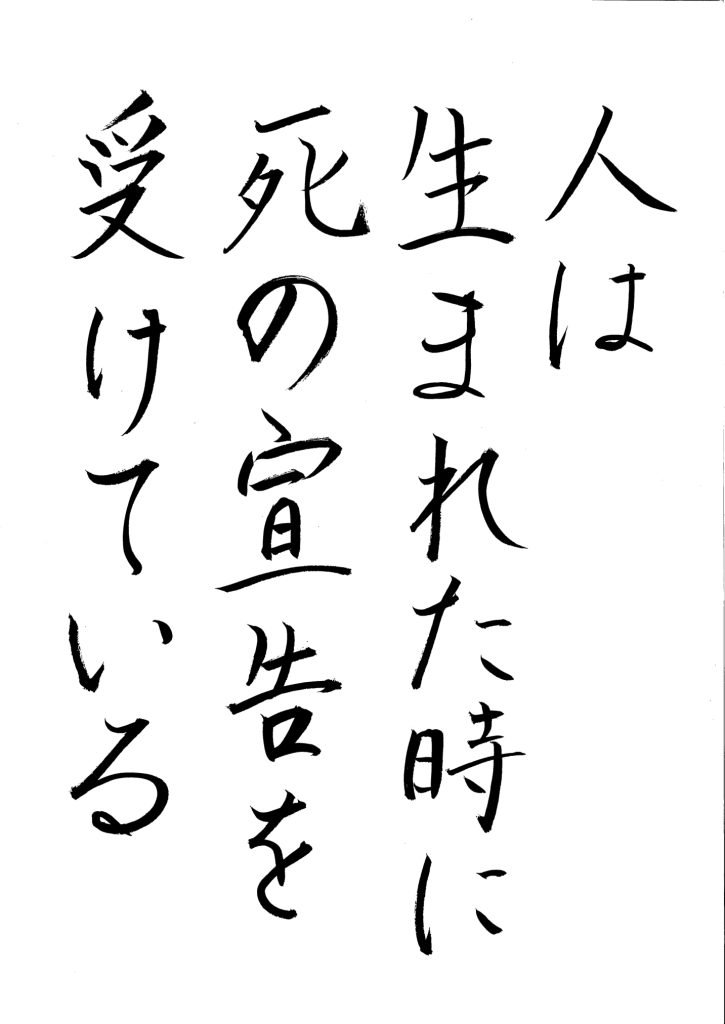 人は
生まれた時に
死の宣告を
受けている